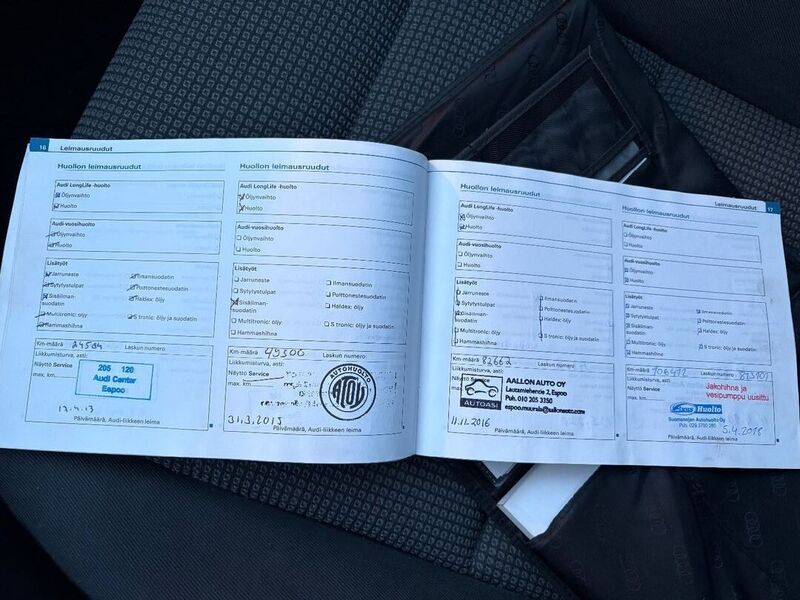 16 Leimausruudut
Huollon leimausruudut
Audi LongLife -huolto
Öljynvaihto
Huolto
Audi-vuosihuolto
Öljynvaihto
Huolto
Lisätyöt
Jarruneste
Sytytystulpat
Sisäilman-
suodatin
Multitronic: öljy
Hammashihna
Ilmansuodatin
Polttonestesuodatin
Haldex: öljy
S tronic: öljy ja suodatin
Km-määrä 24504
Laskun numero:
Liikkumisturva, asti:
Näyttö Service
max. km
205 120
Audi Center
Espoo
Päivämäärä, Audi-liikkeen leima
Huollon leimausruudut
Audi LongLife -huolto
Öljynvaihto
Huolto
Audi-vuosihuolto
Öljynvaihto
Huolto
Lisätyöt
Jarruneste
Sytytystulpat
Sisäilman-
suodatin
Multitronic: öljy
Hammashihna
Ilmansuodatin
Polttonestesuodatin
Haldex: öljy
S tronic: öljy ja suodatin
Km-määrä 49300
Laskun numero:
Liikkumisturva, asti:
Näyttö Service
max. km
AUTOHUOLTO
31.3.2015
Päivämäärä, Audi-liikkeen leima
Huollon leimausruudut
Audi LongLife -huolto
Öljynvaihto
Huolto
Audi-vuosihuolto
Öljynvaihto
Huolto
Lisätyöt
Jarruneste
Sytytystulpat
Sisäilman-
suodatin
Multitronic: öljy
Hammashihna
Ilmansuodatin
Polttonestesuodatin
Haldex: öljy
S tronic: öljy ja suodatin
Km-määrä 82662
Laskun numero:
Liikkumisturva, asti:
Näyttö Service
max. km
AUTOASI
AALLON AUTO OY
Lautamiehentie 2, Espoo
Puh. 010 205 3350
espoo.muurala@aallonauto.com
11.11.2016
Päivämäärä, Audi-liikkeen leima
Leimausruudut 17
Huollon leimausruudut
Audi LongLife -huolto
Öljynvaihto
Huolto
Audi-vuosihuolto
Öljynvaihto
Huolto
Lisätyöt
Jarruneste
Sytytystulpat
Sisäilman-
suodatin
Multitronic: öljy
Hammashihna
Ilmansuodatin
Polttonestesuodatin
Haldex: öljy
S tronic: öljy ja suodatin
Km-määrä 106472
Laskun numero:
Liikkumisturva, asti:
Näyttö Service
max. km
Jakohihna ja
vesipumppu uusittu
Huolto
5.4.2018
Päivämäärä, Audi-liikkeen leima